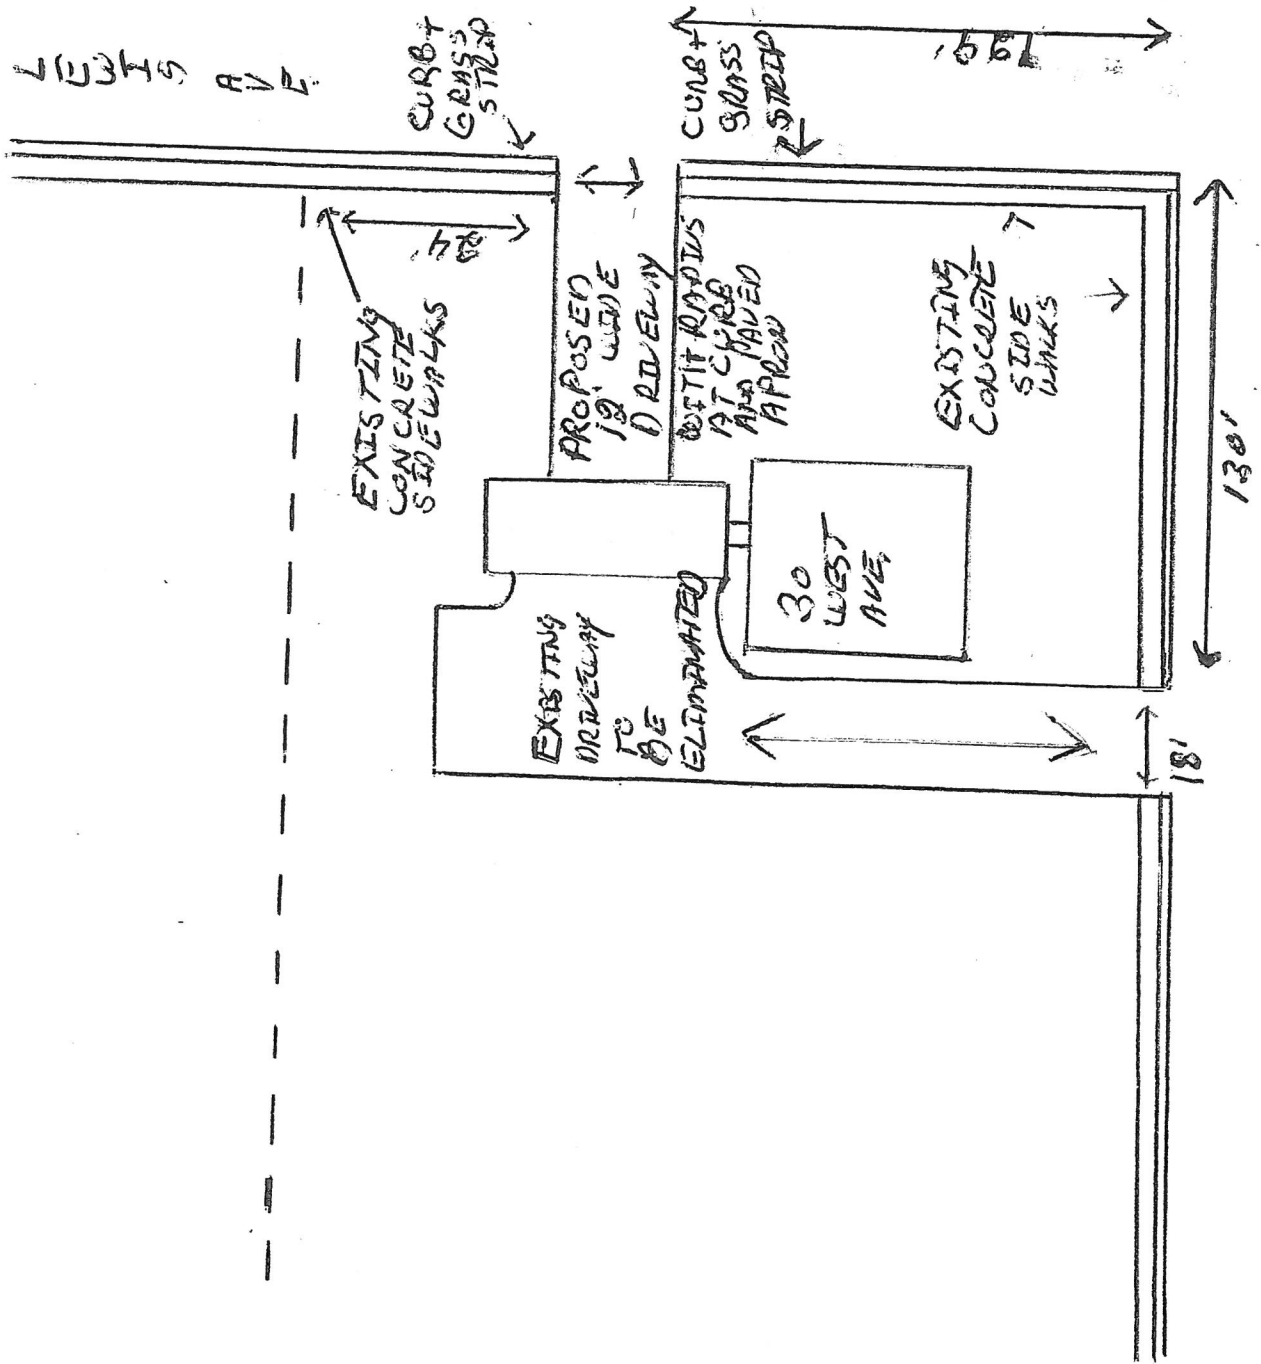 LEWIS AVE.
CURB +
GRASS
STRIP
CURB +
GRASS
STRIP
24'
EXISTING
CONCRETE
SIDEWALKS
PROPOSED
WIDE
DRIVEWAY
WITH RADIUS
AT CURB
AND PAVED
APRON
EXISTING
CONCRETE
SIDE
WALKS
30
WEST
AVE.
EXISTING
DRIVEWAY
TO
BE
ELIMANATED
130'
18'